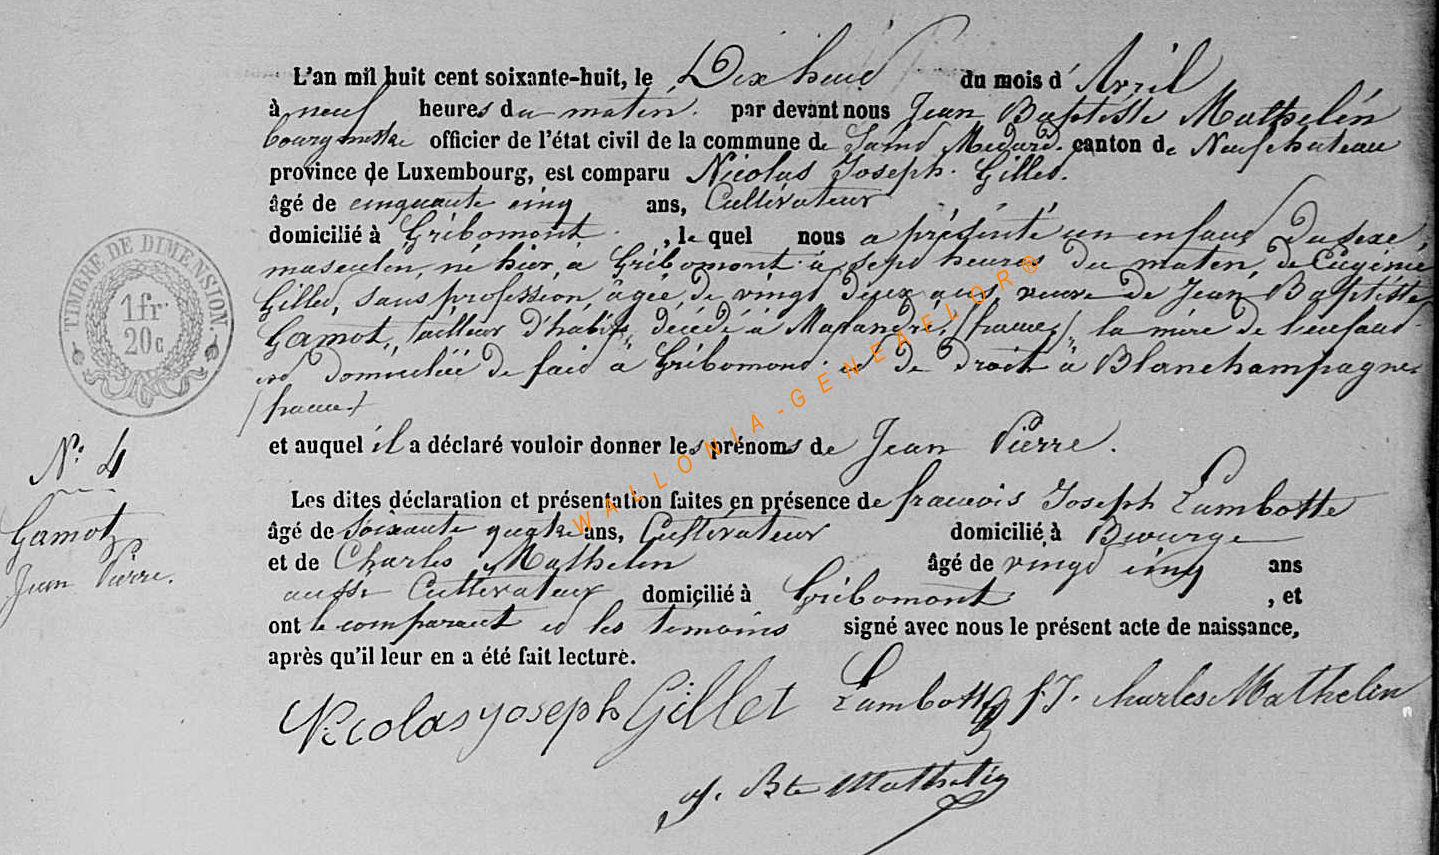 L'an mil huit cent soixante-huit, le Dix huit du mois d'Avril
à neuf heures du matin. par devant nous Jean Baptiste Mathelin
bourgmestre officier de l'état civil de la commune de Saint Medard. canton de Neufchateau
province de Luxembourg, est comparu Nicolas Joseph Gillet.
âgé de cinquante cinq ans, Cultivateur
domicilié à Gribomont, le quel nous a présenté un enfant du sexe
masculin, né hier, à Gribomont à sept heures du matin, de Eugénie
Gillet, sans profession, âgée de vingt deux ans, veuve de Jean Baptiste
Gamot, tailleur d'habits, décédé à (france), la mère de l'enfant
est domiciliée de fait à Gribomont et de droit à Blanchampagne
(france)
et auquel il a déclaré vouloir donner les prénoms de Jean Pierre.
N° 4
Gamot
Jean Pierre.
Les dites déclaration et présentation faites en présence de francois Joseph Lambotte
âgé de Soixante quatre ans, Cultivateur domicilié à
et de Charles Mathelin âgé de vingt cinq ans
aussi Cultivateur domicilié à Gribomont, et
ont le comparant et les témoins signé avec nous le présent acte de naissance,
après qu'il leur en a été fait lecture.
Nicolas joseph Gillet Lambotte f. J. charles Mathelin
J. Bte Mathelin
TIMBRE DE DIMENSION.
1 fr.
20 c
WALLONIA-GENEAELOR®